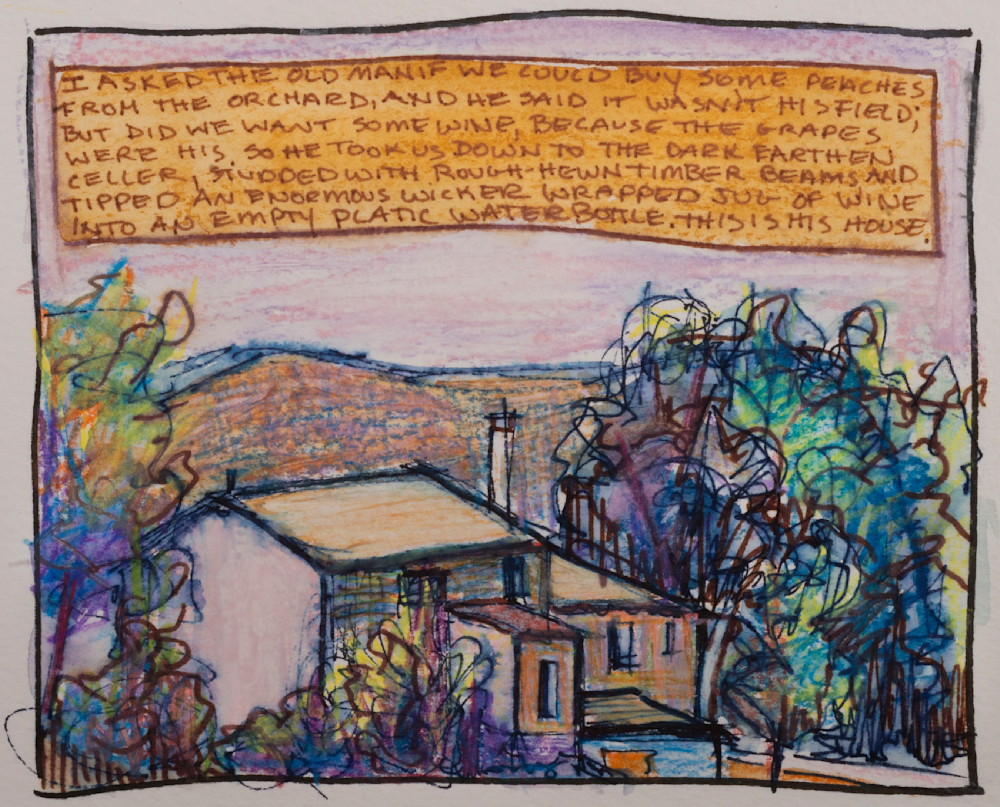 I ASKED THE OLD MAN IF WE COULD BUY SOME PEACHES
FROM THE ORCHARD, AND HE SAID IT WASN'T HIS FIELD;
BUT DID WE WANT SOME WINE, BECAUSE THE GRAPES
WERE HIS. SO HE TOOK US DOWN TO THE DARK EARTHEN
CELLER, STUDDED WITH ROUGH-HEWN TIMBER BEAMS AND
TIPPED AN ENORMOUS WICKER WRAPPED JUG OF WINE
INTO AN EMPTY PLATIC WATER BOTTLE. THIS IS HIS HOUSE.